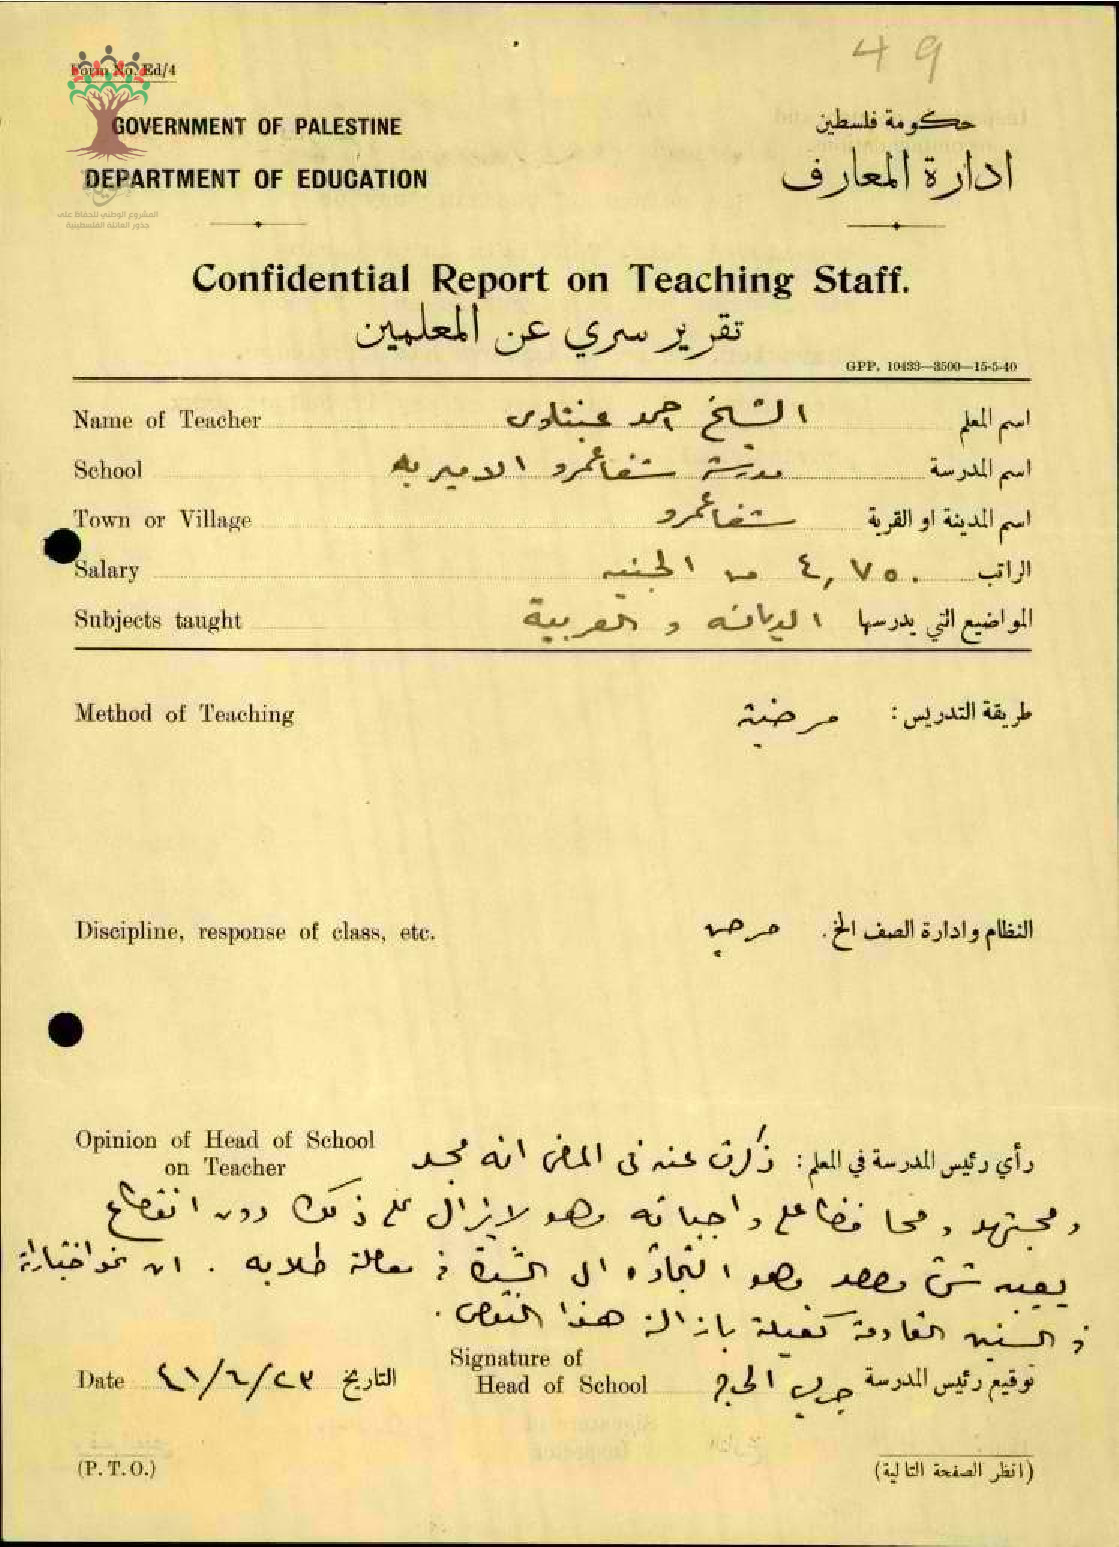 49
Form No. Ed/4
GOVERNMENT OF PALESTINE
حكومة فلسطين
DEPARTMENT OF EDUCATION
ادارة المعارف
المشروع الوطني للحفاظ على
جذور العائلة الفلسطينية
Confidential Report on Teaching Staff.
تقرير سري عن المعلمين
GPP. 10433—3500—15-5-40
Name of Teacher الشيخ احمد عبنتاوى اسم المعلم
School مدرسة شفاعمرو الاميريه اسم المدرسة
Town or Village شفاعمرو اسم المدينة او القرية
Salary ٤,٧٥٠ من الجنيه الراتب
Subjects taught الديانه و العربية المواضيع التي يدرسها
Method of Teaching طريقة التدريس : مرضية
Discipline, response of class, etc. النظام وادارة الصف الخ.
Opinion of Head of School
on Teacher
رأي رئيس المدرسة في المعلم : ذكرت عنه في الماضى انه مجد
ومجتهد ومحافظ على واجباته وهو لا يزال على ذلك دون انقطاع
يعيبه شئ وهو التجاؤه الى الشدة في معاملة طلابه . ان نمو اختباراته
في السنين القادمة كفيلة بازالة هذا النقص .
Date ٤١/٦/٢٣ التاريخ
Signature of
Head of School توقيع رئيس المدرسة
(P. T. O.)
(انظر الصفحة التالية)